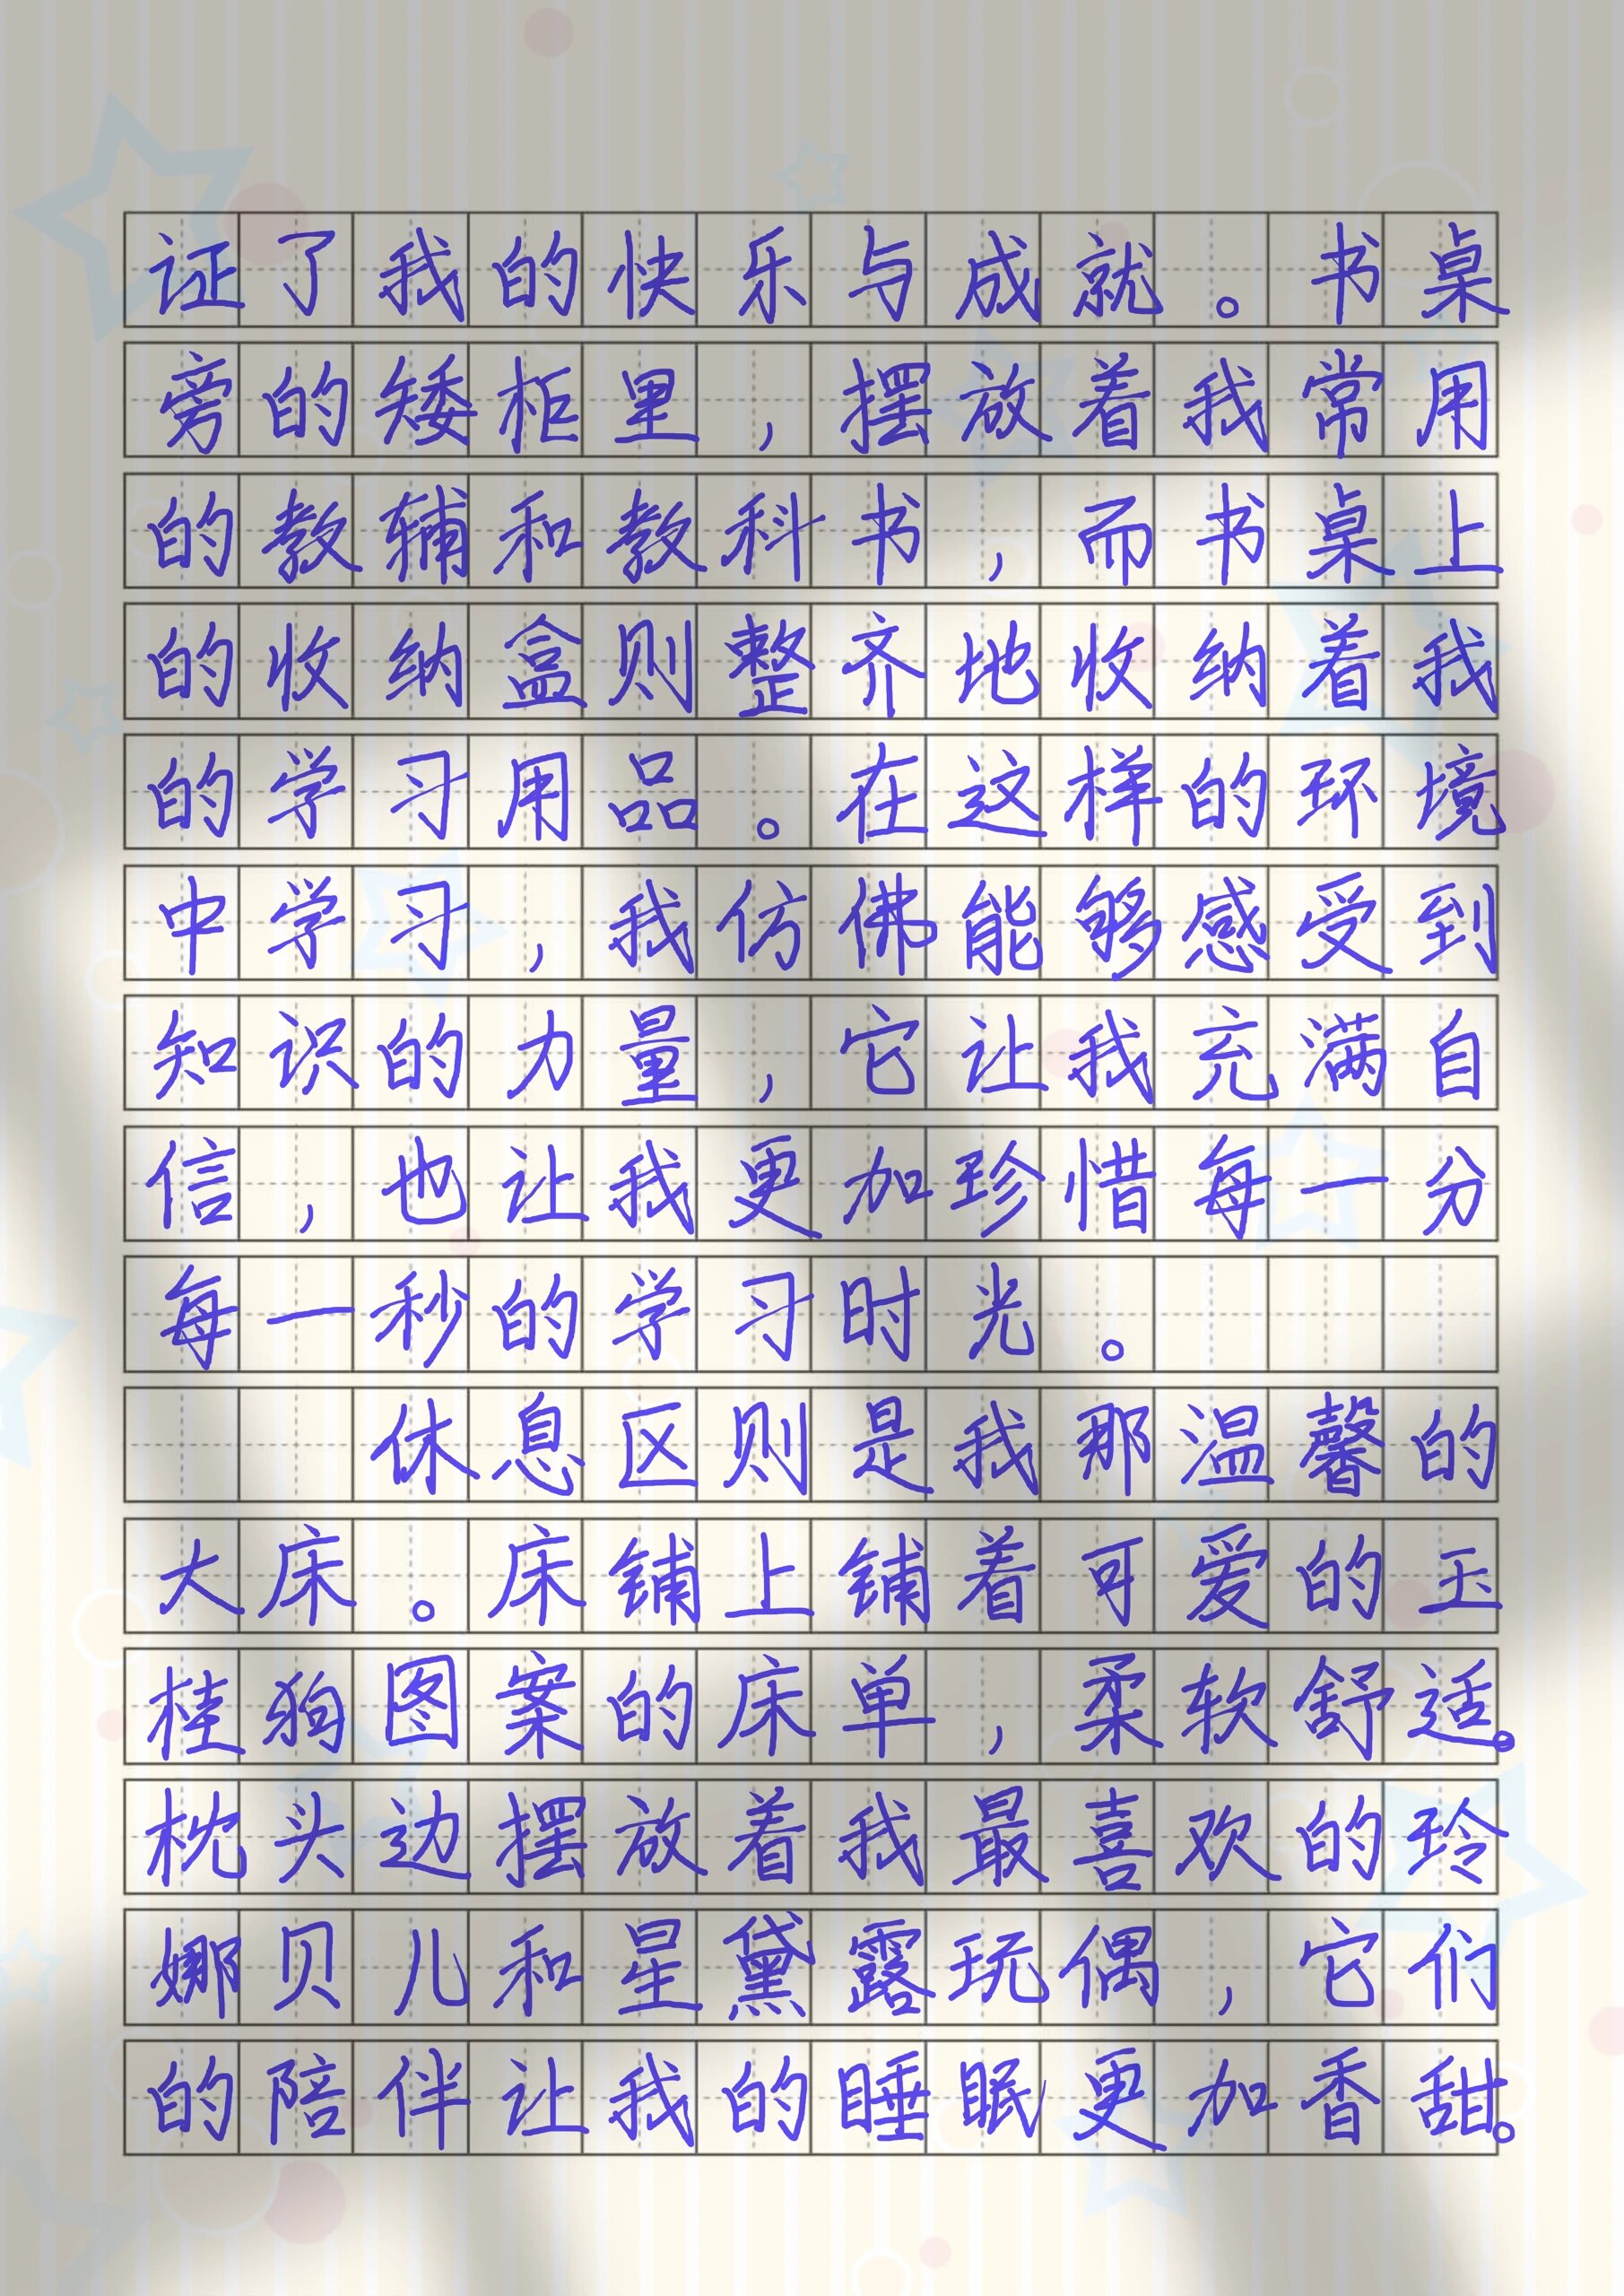 证了我的快乐与成就。书桌
旁的矮柜里，摆放着我常用
的教辅和教科书，而书桌上
的收纳盒则整齐地收纳着我
的学习用品。在这样的环境
中学习，我仿佛能够感受到
知识的力量，它让我充满自
信，也让我更加珍惜每一分
每一秒的学习时光。
休息区则是我那温馨的
大床。床铺上铺着可爱的玉
桂狗图案的床单，柔软舒适。
枕头边摆放着我最喜欢的玲
娜贝儿和星黛露玩偶，它们
的陪伴让我的睡眠更加香甜。